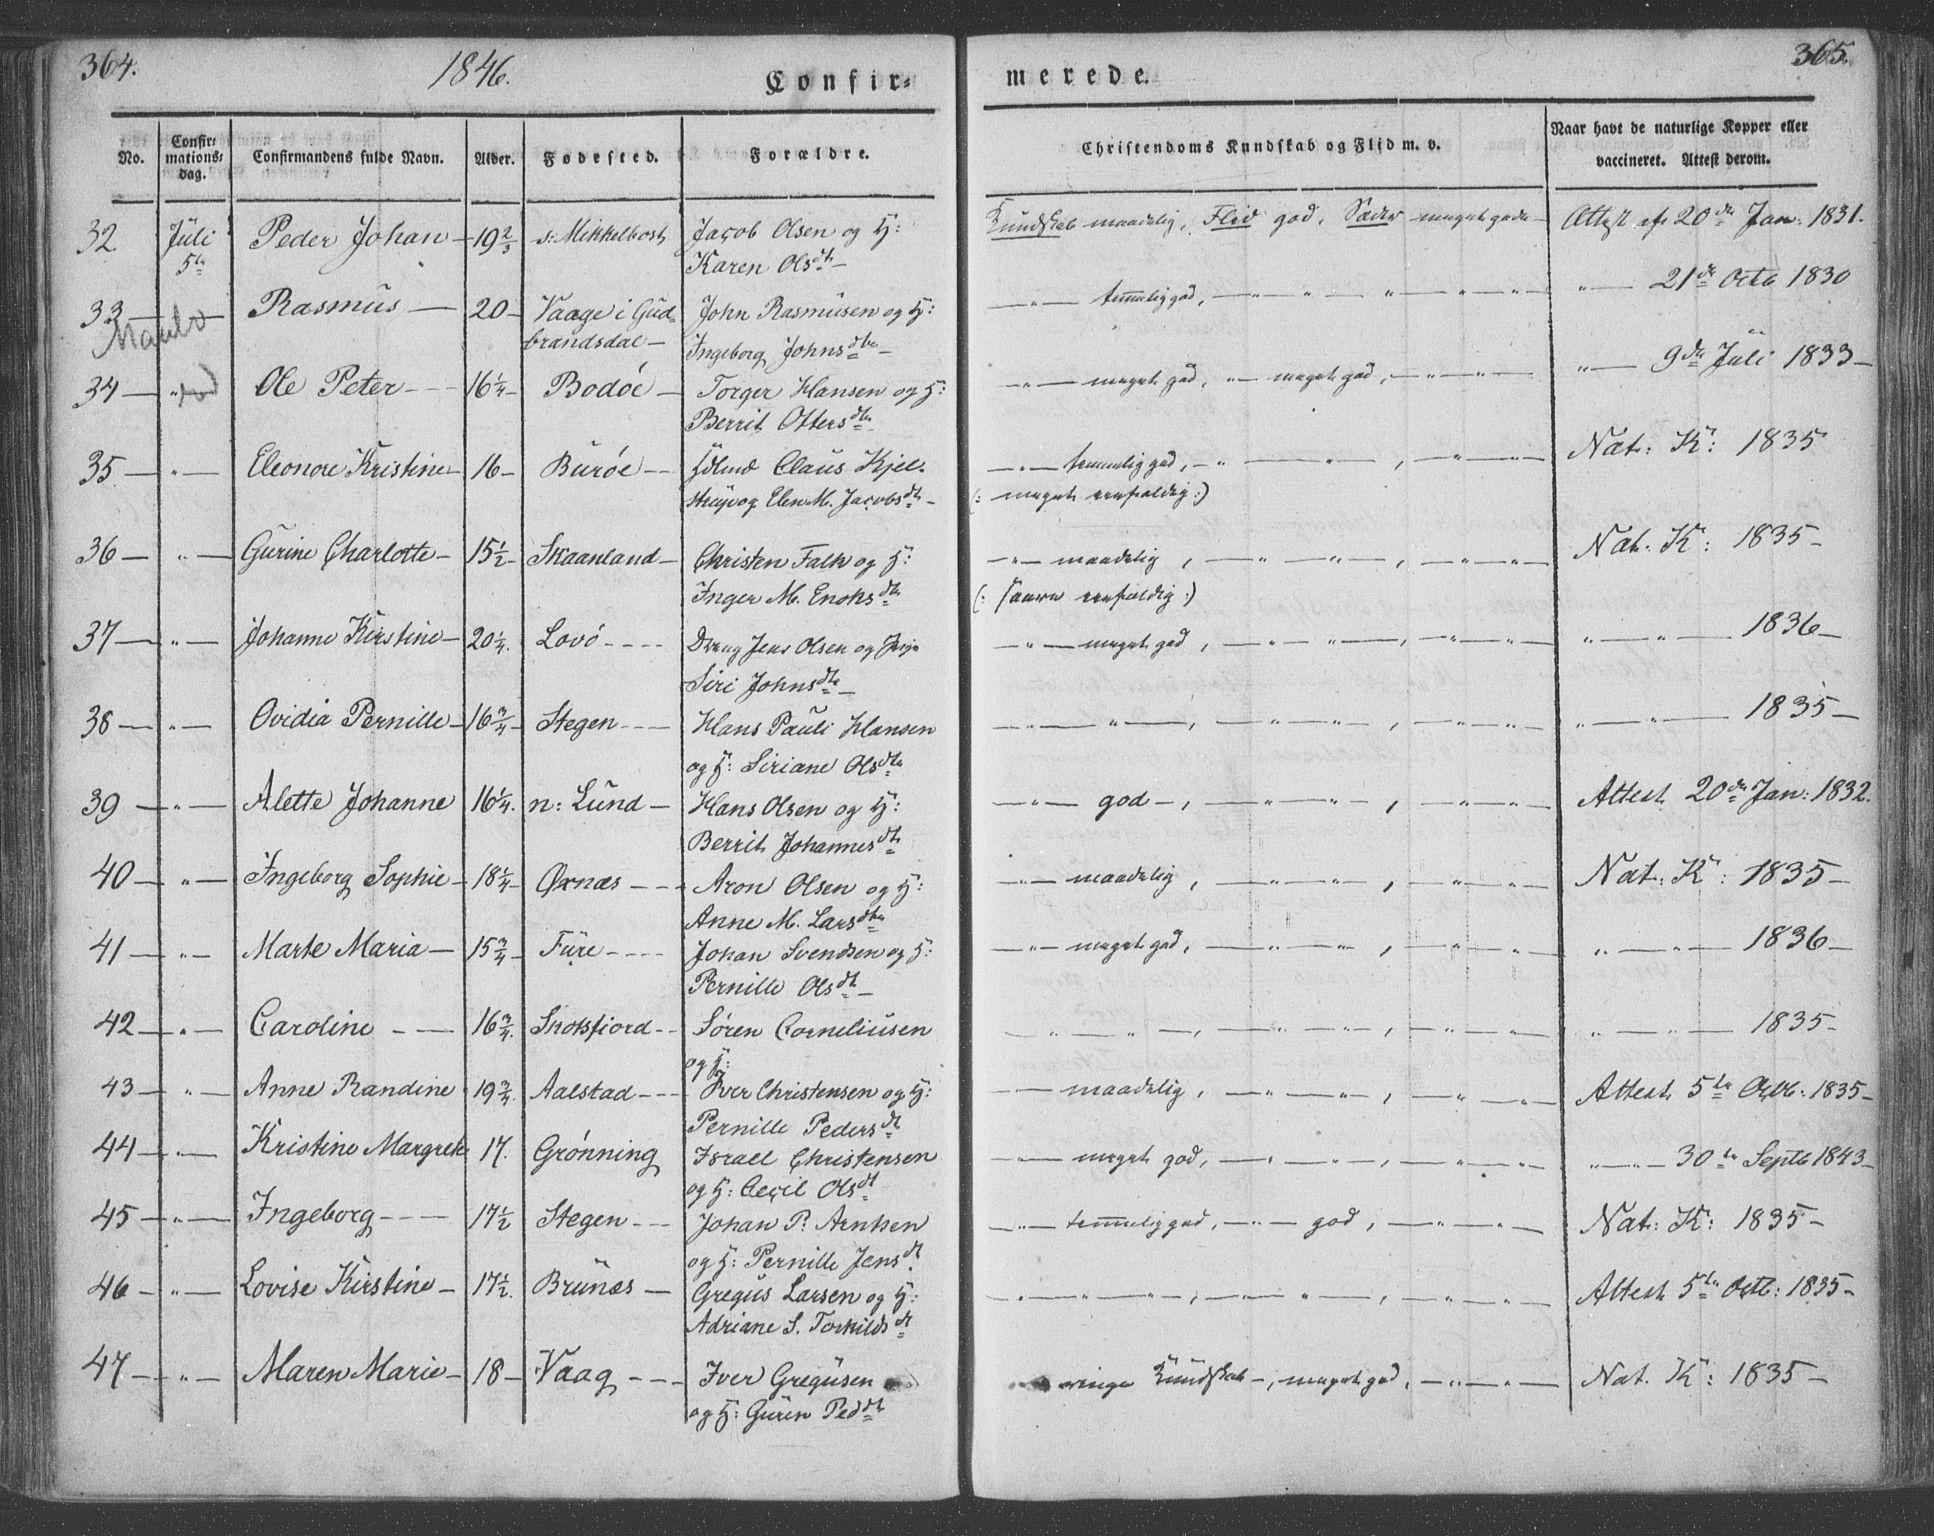 364.
1846.
Confir-
merede.
365.
No.
Confir-
mations-
dag.
Confirmandens fulde Navn.
Alder.
Fødested.
Forældre.
Christendoms Kundskab og Flid m. v.
Naar havt de naturlige Kopper eller
vaccineret. Attest derom.
32 Juli Peder Johan – 19 2/3 s: Mikkelbost Jacob Olsen og H: Kundskab maadelig, Flid god, Sæder meget gode – Attest af 20de Jan: 1831.
5te Karen Olsdt –
33 – Rasmus – 20 – Vaage i Gud John Rasmusen og H: – " – temmelig god, – " – " " – " – " " – 21de Octb 1830
brandsdal – Ingeborg Johnsdtr –
34 – " Ole Peter – 16 1/4 – Bodøe – Torger Hansen og H: – " – meget god, " – meget god, – " – " – " " – 9de Juli 1833 –
Berrit Ottersdtr
35 – " – Eleonore Kristine – 16 – Burøe – Claus Kjel- – " – temmelig god, – " – " – , – " – " – Nat: K: 1835
strup og Elen M. Jacobsdt – (: meget eenfoldig :)
36 – " – Gurine Charlotte – 15 1/2 – Skaanland – Christen Falk og H: – " – maadelig , – " – " – , – " – " – Nat. K: 1835 –
Inger M. Enoksdtr (: eenfoldig :)
37 – " – Johanne Kirstine – 20 1/4. Lovö – Jens Olsen og Pige – " – meget god , – " – " – , – " – " – " – " – 1836 –
Siri Johnsdtr –
38 – " – Ovidia Pernille – 16 3/4 – Stegen – Hans Pauli Hansen – " – , – " – " – , – " – " – " – " – 1835 –
og H: Siriane Olsdtr
39 – " – Alette Johanne 16 1/4. n: Lund – Hans Olsen og H: – " – god – , – " – " – , – " – " – Attest 20de Jan: 1832.
Berrit Johannesdt
40 – " – Ingeborg Sophie – 18 1/4 – Øxnæs – Aron Olsen og H: – " – maadelig , – " – " – , – " – " – Nat: K: 1835 –
Anne M. Larsdtr
41 – " – Marte Maria – 15 3/4 – Fure – Johan Svendsen og H: – " – meget god , – " – " – , – " – " – " – " – 1836 –
Pernille Olsdt –
42 – " – Caroline – 16 3/4. Skotsfiord – Søren Corneliusen " – " – , – " – " – , – " – " – " – " – 1835 –
og H:
43 – " – Anne Randine 19 3/4. Aalstad – Iver Christensen og H: – " – maadelig , – " – " – , – " – " – Attest 5te Octb: 1835 –
Pernille Pedersdt
44 – " – Kristine Margrete 17. Grönning Israel Christensen – " – meget god , – " – " – , – " – " – " – " – 30te Septb 1843 –
og H: Cecil Olsdt
45 – " – Ingeborg – 17 1/2 Stegen – Johan P. Arntsen – " – temmelig god , – " – god , – " – " – Nat: K: 1835 –
og H: Pernille Jensdt.
46 – " – Lovise Kirstine – 17 1/2. Brunæs – Gregus Larsen og H: – " – " – , – " – " – , – " – " – Attest 5te Octb: 1835 –
Adriane S. Torkildsdt
47 – " – Maren Marie – 18 – Vaag – Iver Gregusen ringe Kundskab – , meget god , – " – " – Nat. K: 1835 –
og H: Guren Peddt